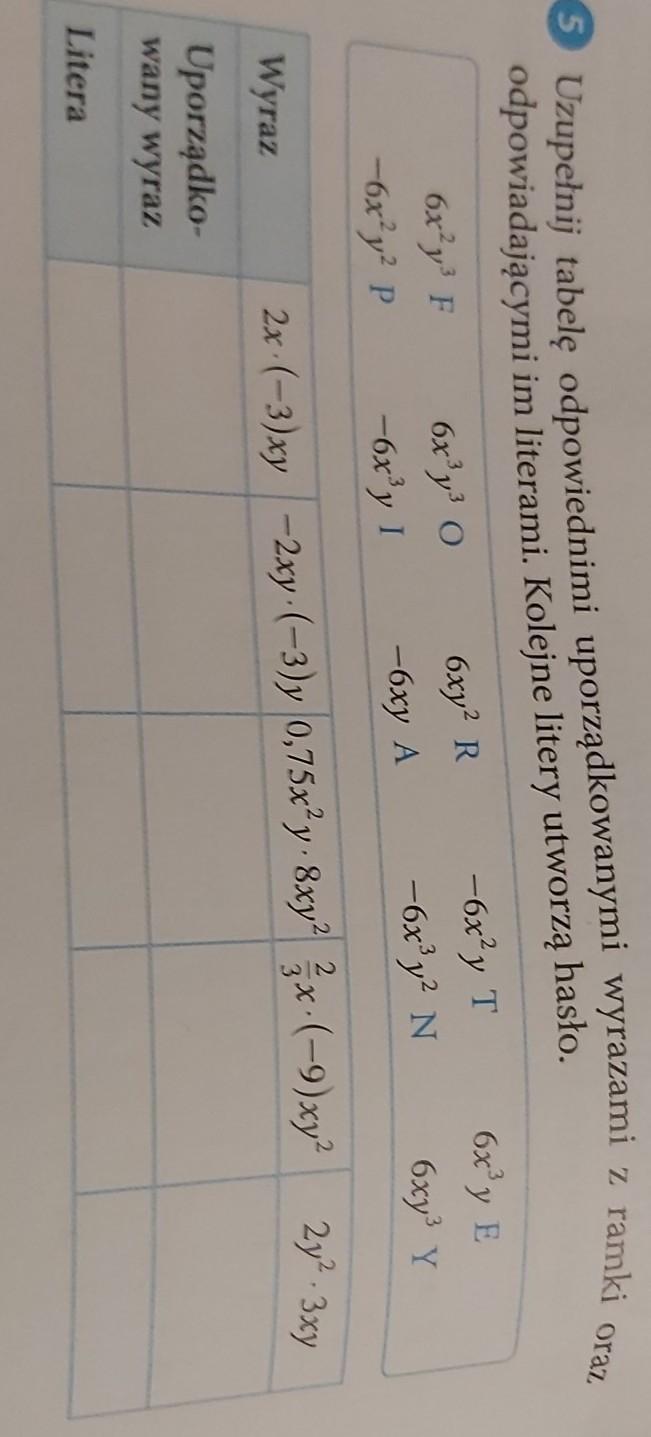 5 Uzupełnij tabelę odpowiednimi uporządkowanymi wyrazami z ramki oraz
odpowiadającymi im literami. Kolejne litery utworzą hasło.
6x²y³ F 6x³y³ O 6xy² R −6x²y T 6x³y E
−6x²y² P −6x³y I −6xy A −6x³y² N 6xy³ Y
Wyraz 2x·(−3)xy −2xy·(−3)y 0,75x²y·8xy² 2/3x·(−9)xy² 2y²·3xy
Uporządko-
wany wyraz
Litera